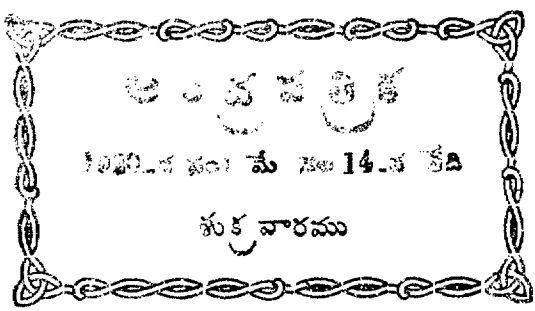 ఆంధ్రపత్రిక
1920-వ సం॥ మే నెల 14-వ తేది
శుక్రవారము